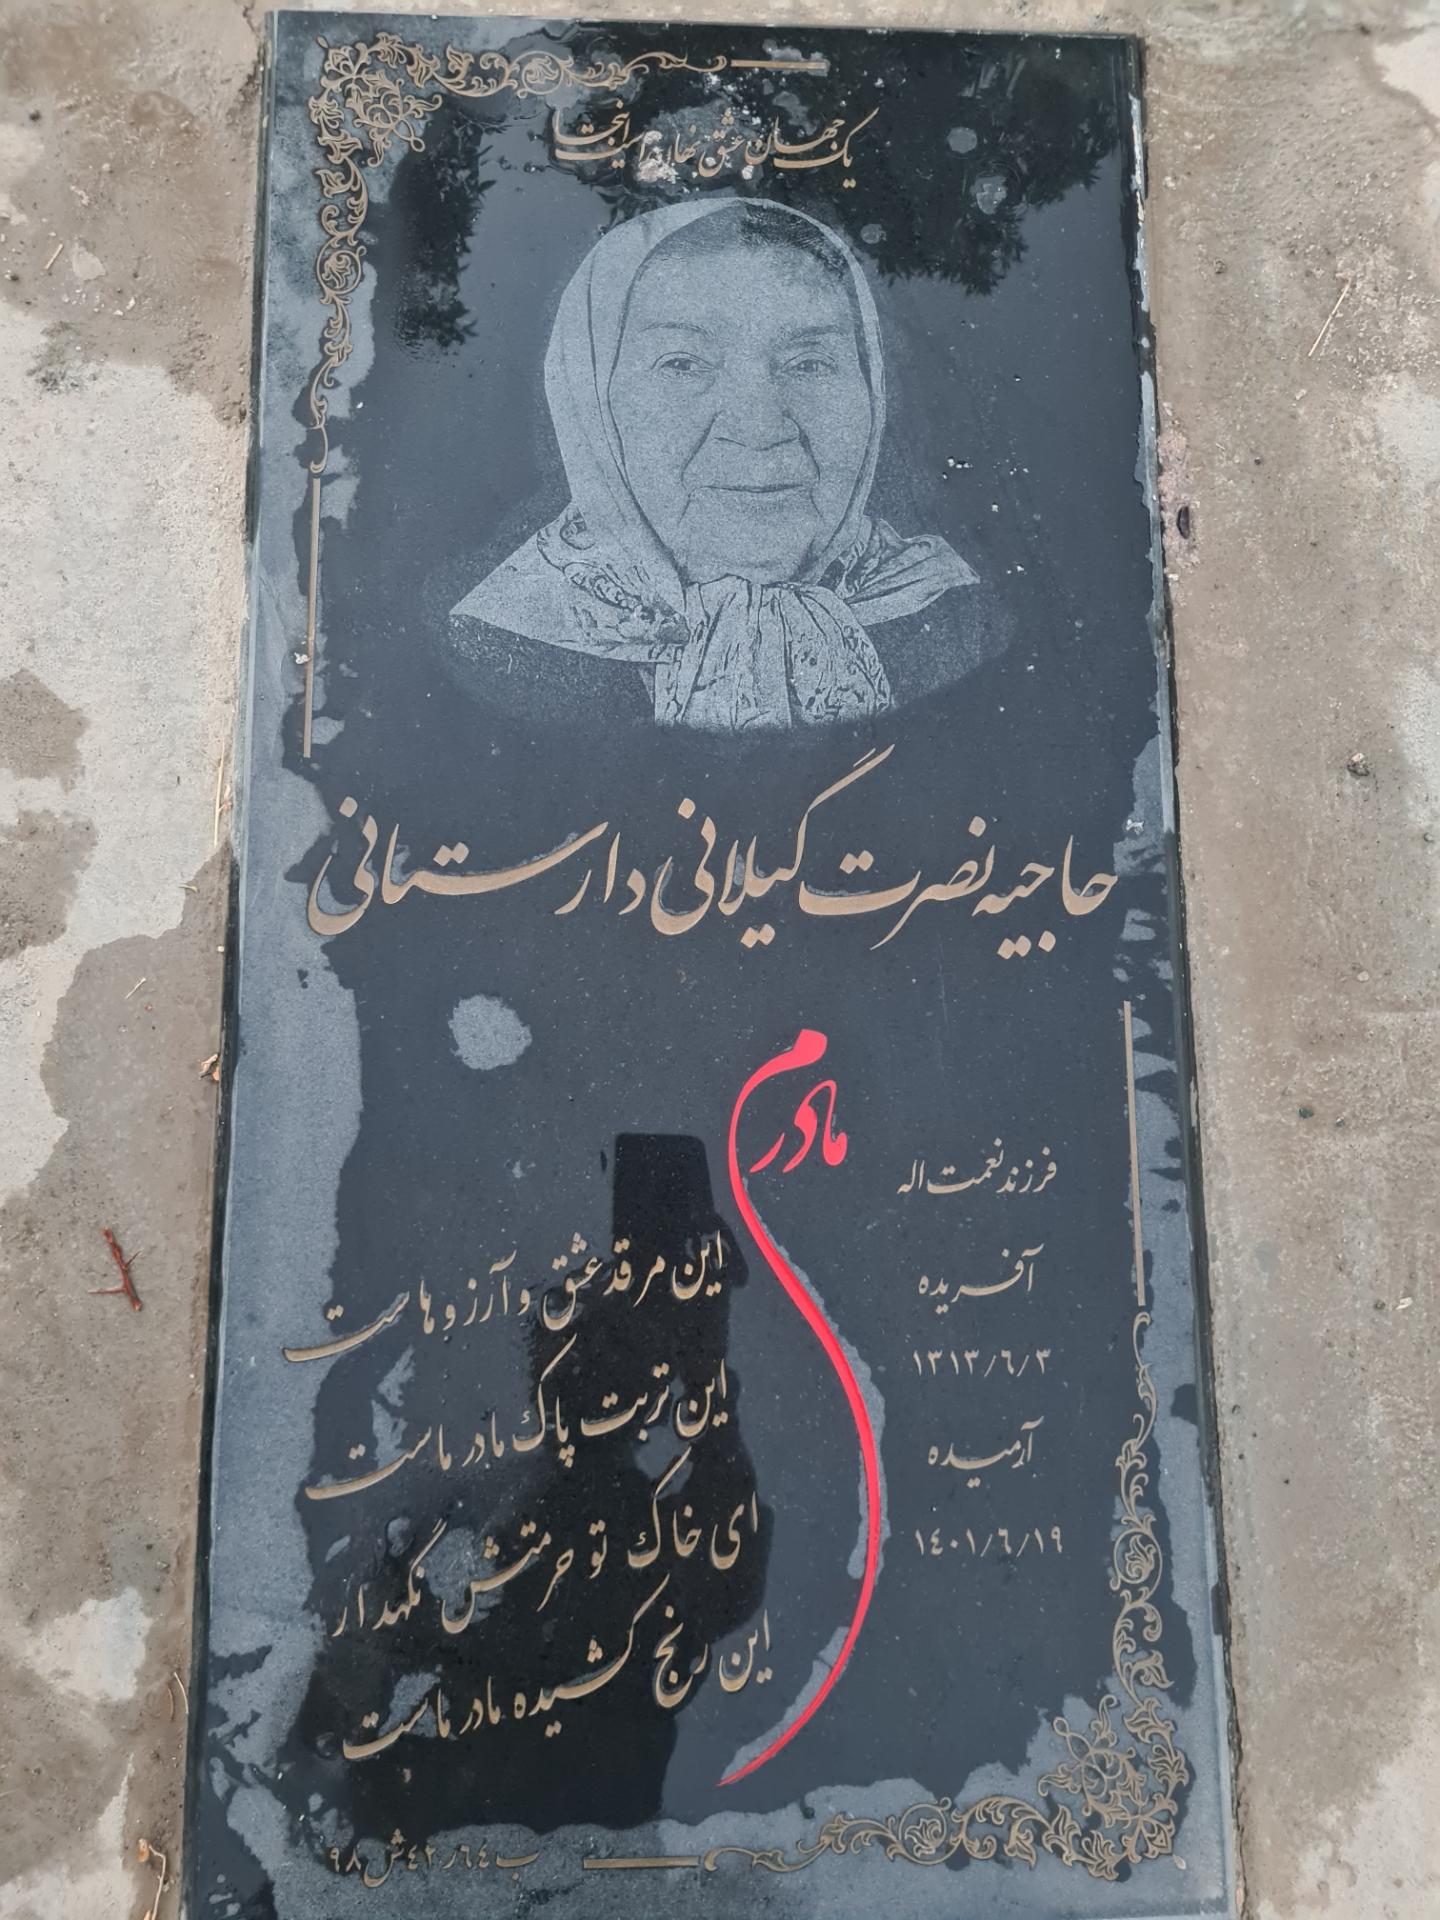 یک جهان عشق نهان است اینجا
حاجیه نصرت گیلانی دارستانی
مادرم
فرزند نعمت اله
آفریده
۱۳۱۳/٦/۳
آرمیده
۱٤۰۱/٦/۱۹
این مرقد عشق و آرزوهاست
این تربت پاک مادر ماست
ای خاک تو حرمتش نگهدار
این رنج کشیده مادر ماست
ب٦٤ر٤٢ش۹۸